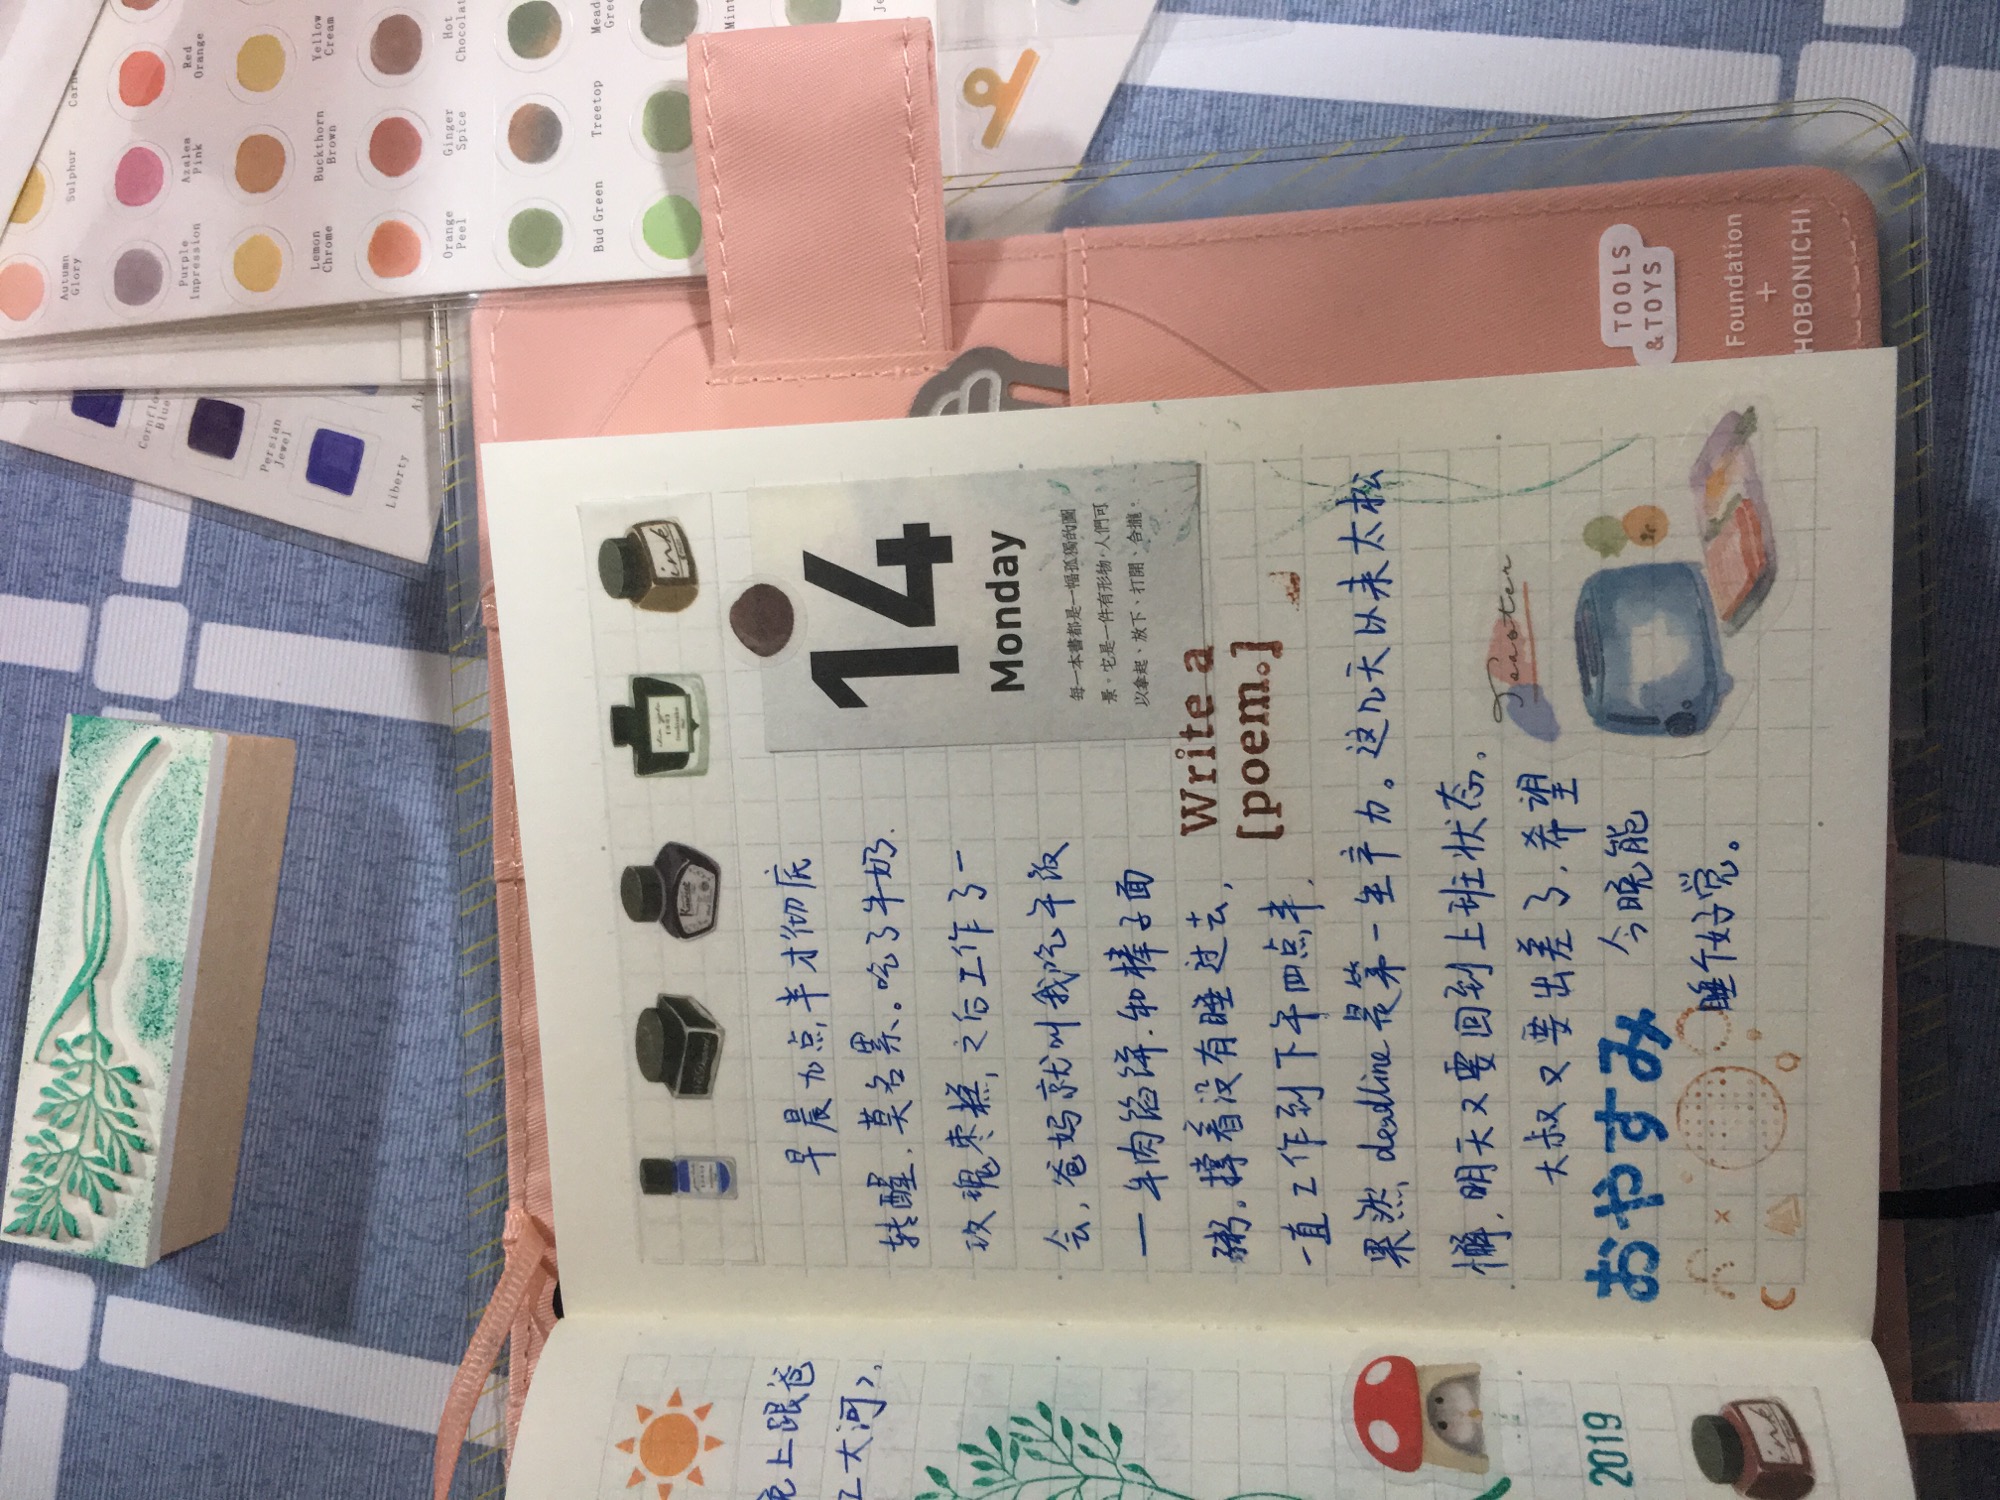 14
Monday
每一本書都是一幅孤獨的圖
景。它是一件有形物，人們可
以拿起、放下、打開、合攏。
早晨九点半才彻底
转醒，莫名累。吃了牛奶.
玫瑰枣糕，之后工作了一
会，爸妈就叫我吃午饭
— 牛肉馅饼.和棒子面
粥。撑着没有睡过去，
一直工作到下午四点半.
果然 deadline 是第一生产力。这几天以来太松
懈，明天又要回到上班状态。
大叔又要出差了，希望
今晚能
睡个好觉。
Write a
[poem.]
Toaster
おやすみ
ink
TOOLS
& TOYS
Foundation
+
HOBONICHI
晚上跟爸
大河》,
2019
ink
Sulphur
Red
Orange
Yellow
Cream
Hot
Chocolat
Azalea
Pink
Buckthorn
Brown
Ginger
Spice
Treetop
Autumn
Glory
Purple
Inpression
Lemon
Chrome
Orange
Peel
Bud Green
Mint
Persian
Jewel
Liberty